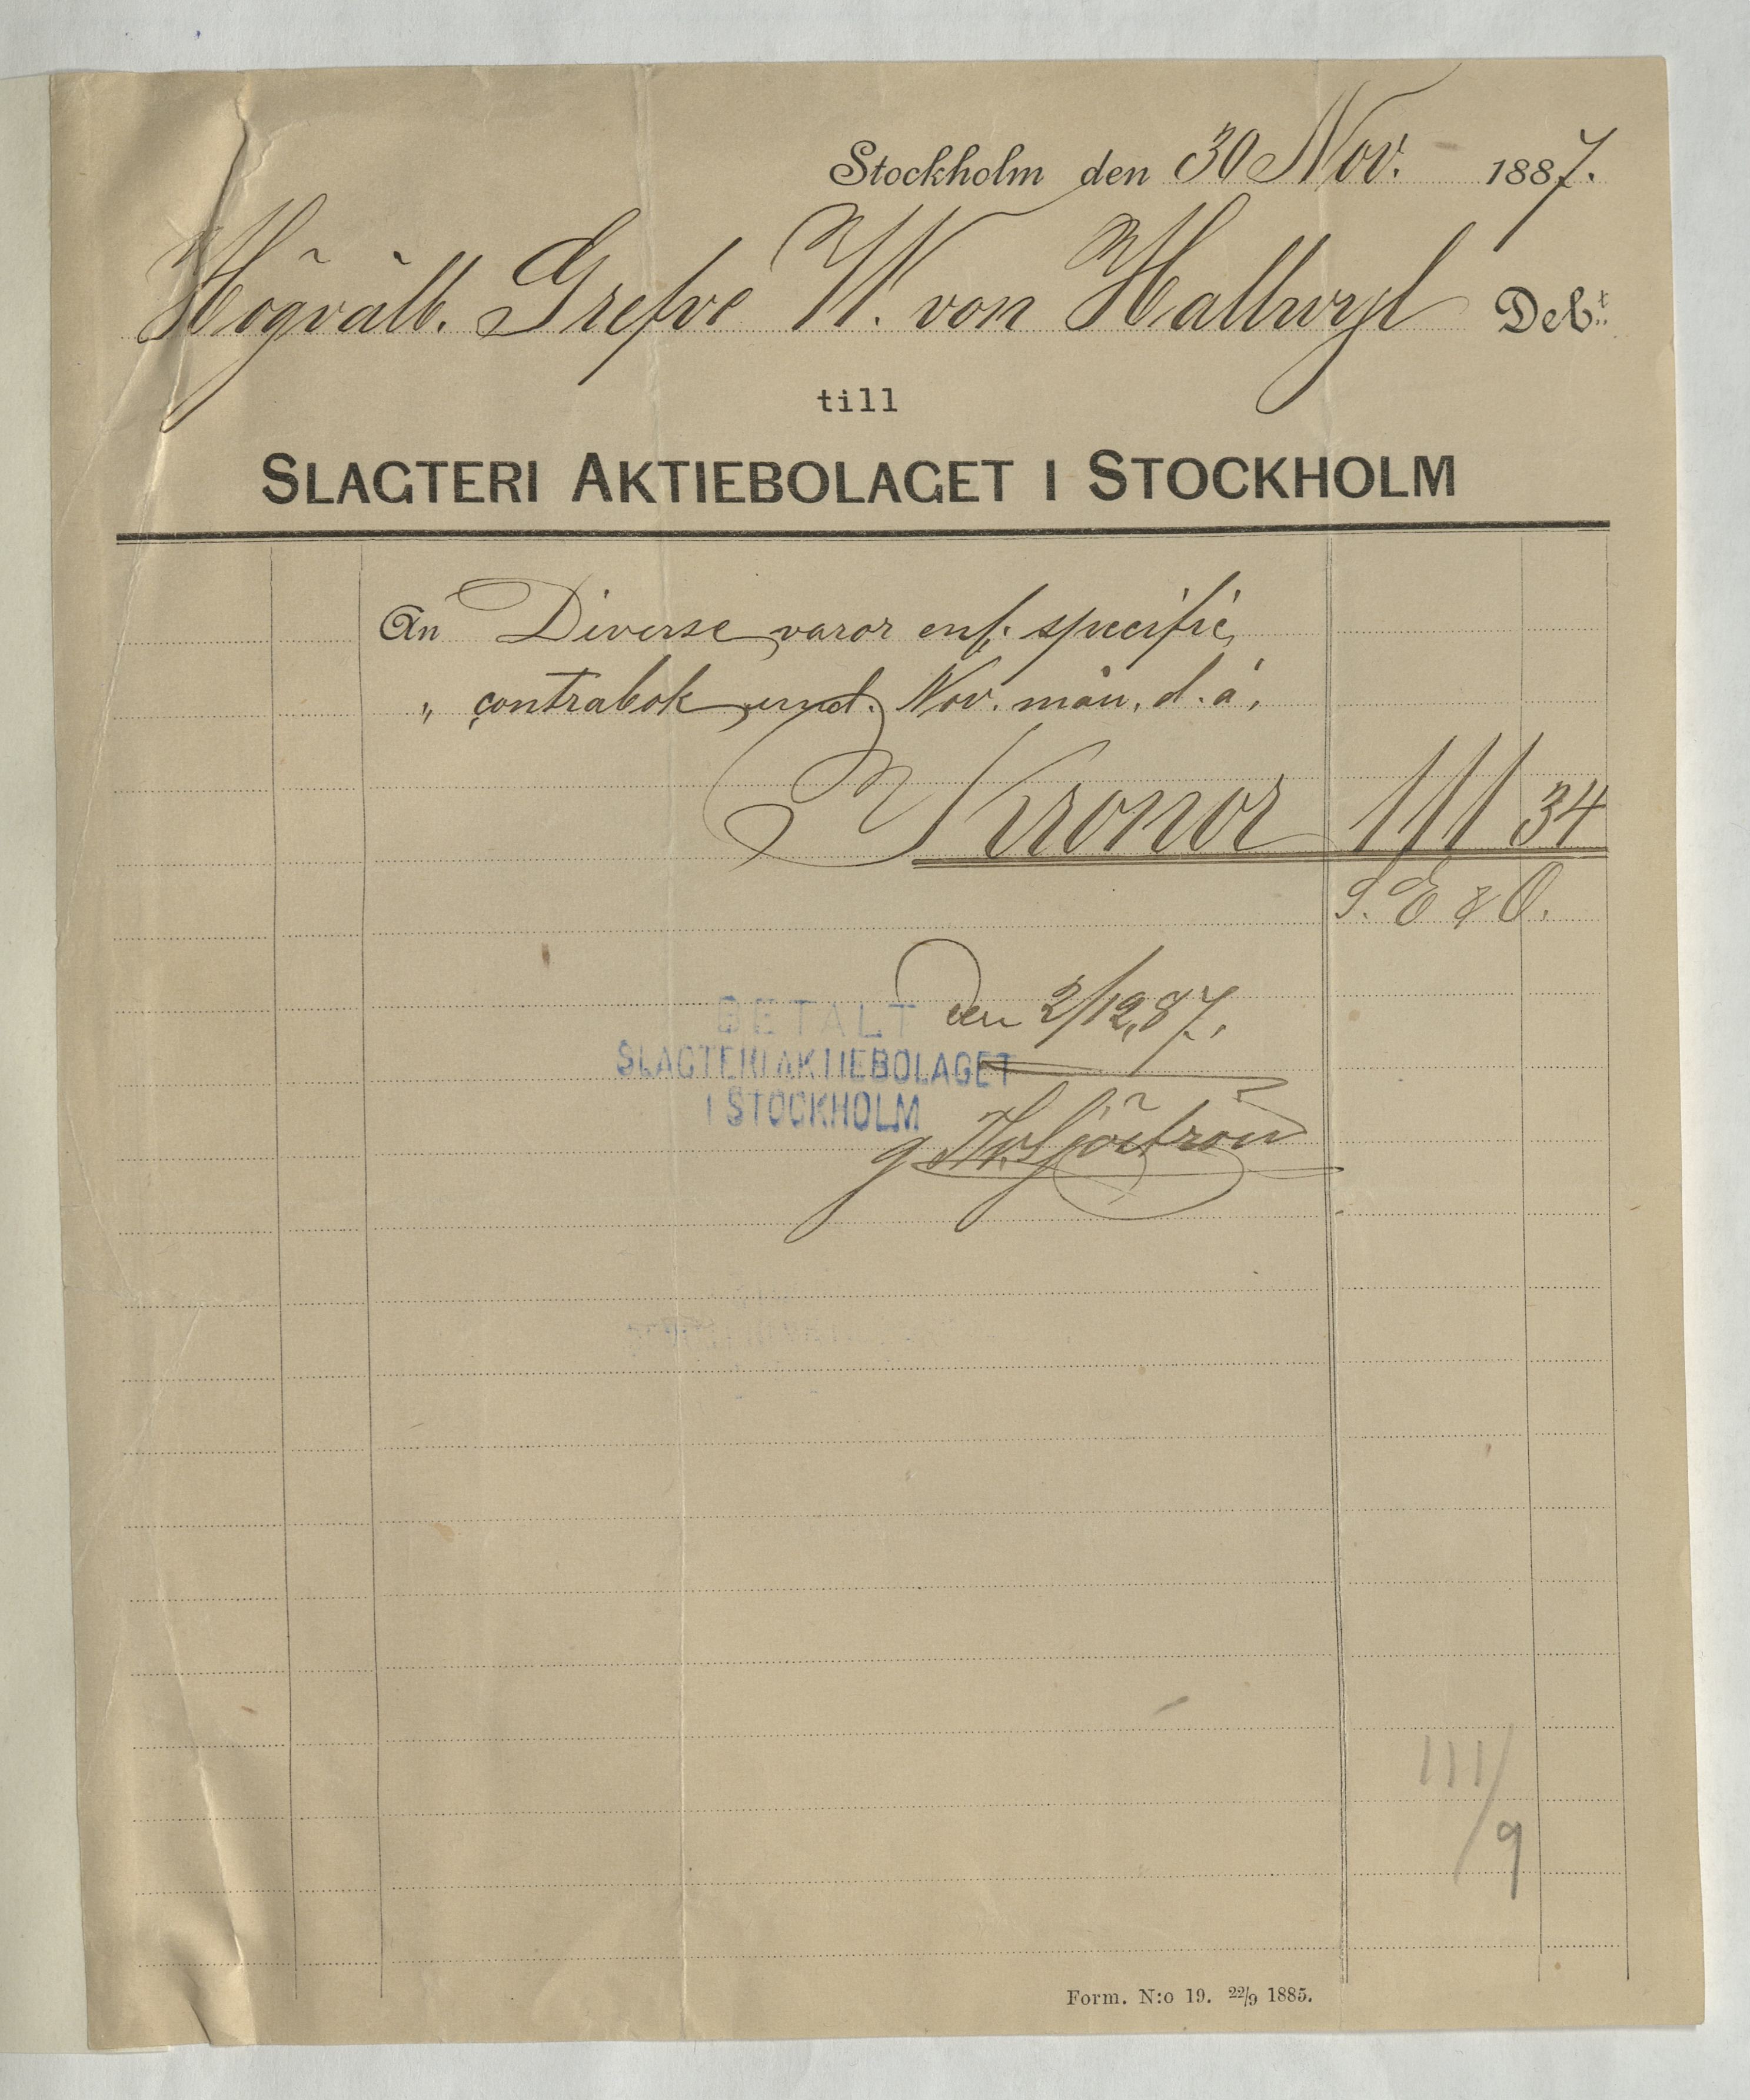 Stockholm den 30 Nov. 1887.
Högvälb. Grefve W. von Hallwyl Deb:t
till
SLAGTERI AKTIEBOLAGET I STOCKHOLM
An Diverse varor enl. specific.
„ contrabok und. Nov. mån. d. å.
Kronor 111 34
S. E & O.
BETALT den 2/12 87.
SLAGTERI AKTIEBOLAGET
I STOCKHOLM
Sjöström
111/9
Form. N:o 19. 22/9 1885.